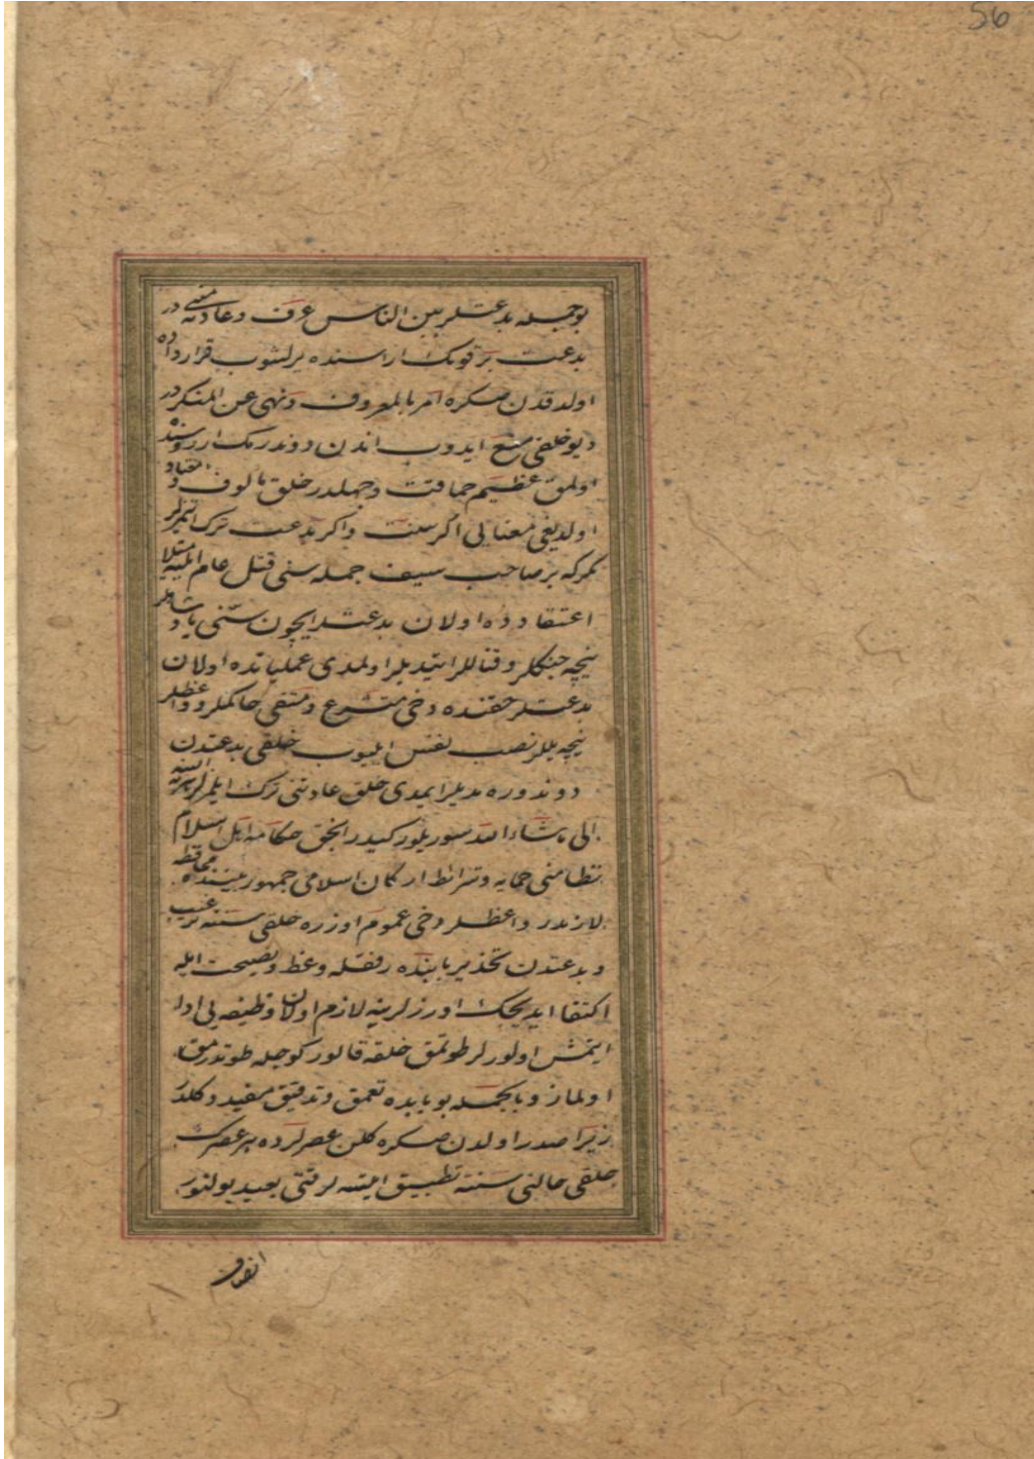 56
بوجمله بدعتلر بین الناس عرف و عادته مبنی در
بدعت بر قومك اراسنده یرلشوب قرارداده
اولدقدن صكره امر بالمعروف و نهی عن المنكر در
دیو خلقی منع ایدوب اندن دوندرمك ارزوسنده
اولمق عظیم حماقت و جهلدر خلق مألوف و معتاد
اولدیغی معنایی اگر سنت و اگر بدعت ترك ایتمزلر
مگر كه بر صاحب سیف جمله سنی قتل عام ایلیه مثلا
اعتقادده اولان بدعتلر ایچون سنی پادشاهلر
نیچه جنكلر و قتاللر ایتدیلر اولمدی عملیاتده اولان
بدعتلر حقنده دخی متشرع و متقی حاكملر و واعظلر
نیچه ییللر نصب نفس ایلیوب خلقی بدعتدن
دوندوره مدیلر ایمدی خلق عادتنی ترك ایلمزلر هر نه ایسه
الی ماشاء الله سوریلور كیدر انجق حكامه اهل اسلام
نظامنی حمایه و شرائط اركان اسلامی جمهور بیننده محافظه
لازمدر واعظلر دخی عموم اوزره خلقی سنته ترغیب
و بدعتدن تحذیر بابنده رفقله وعظ و نصیحت ایله
اكتفا ایدیجك اوزرلرینه لازم اولان وظیفه یی ادا
ایتمش اولورلر طوتمق خلقه قالور كوجله طوتدرمق
اولماز و بالجمله بو بابده تعمق و تدقیق مفید دكلدر
زیرا صدر اولدن صكره كلن عصرلرده هر عصرك
خلقی حالنی سنته تطبیق ایتسه لر قتی بعید بولنور
انصاف